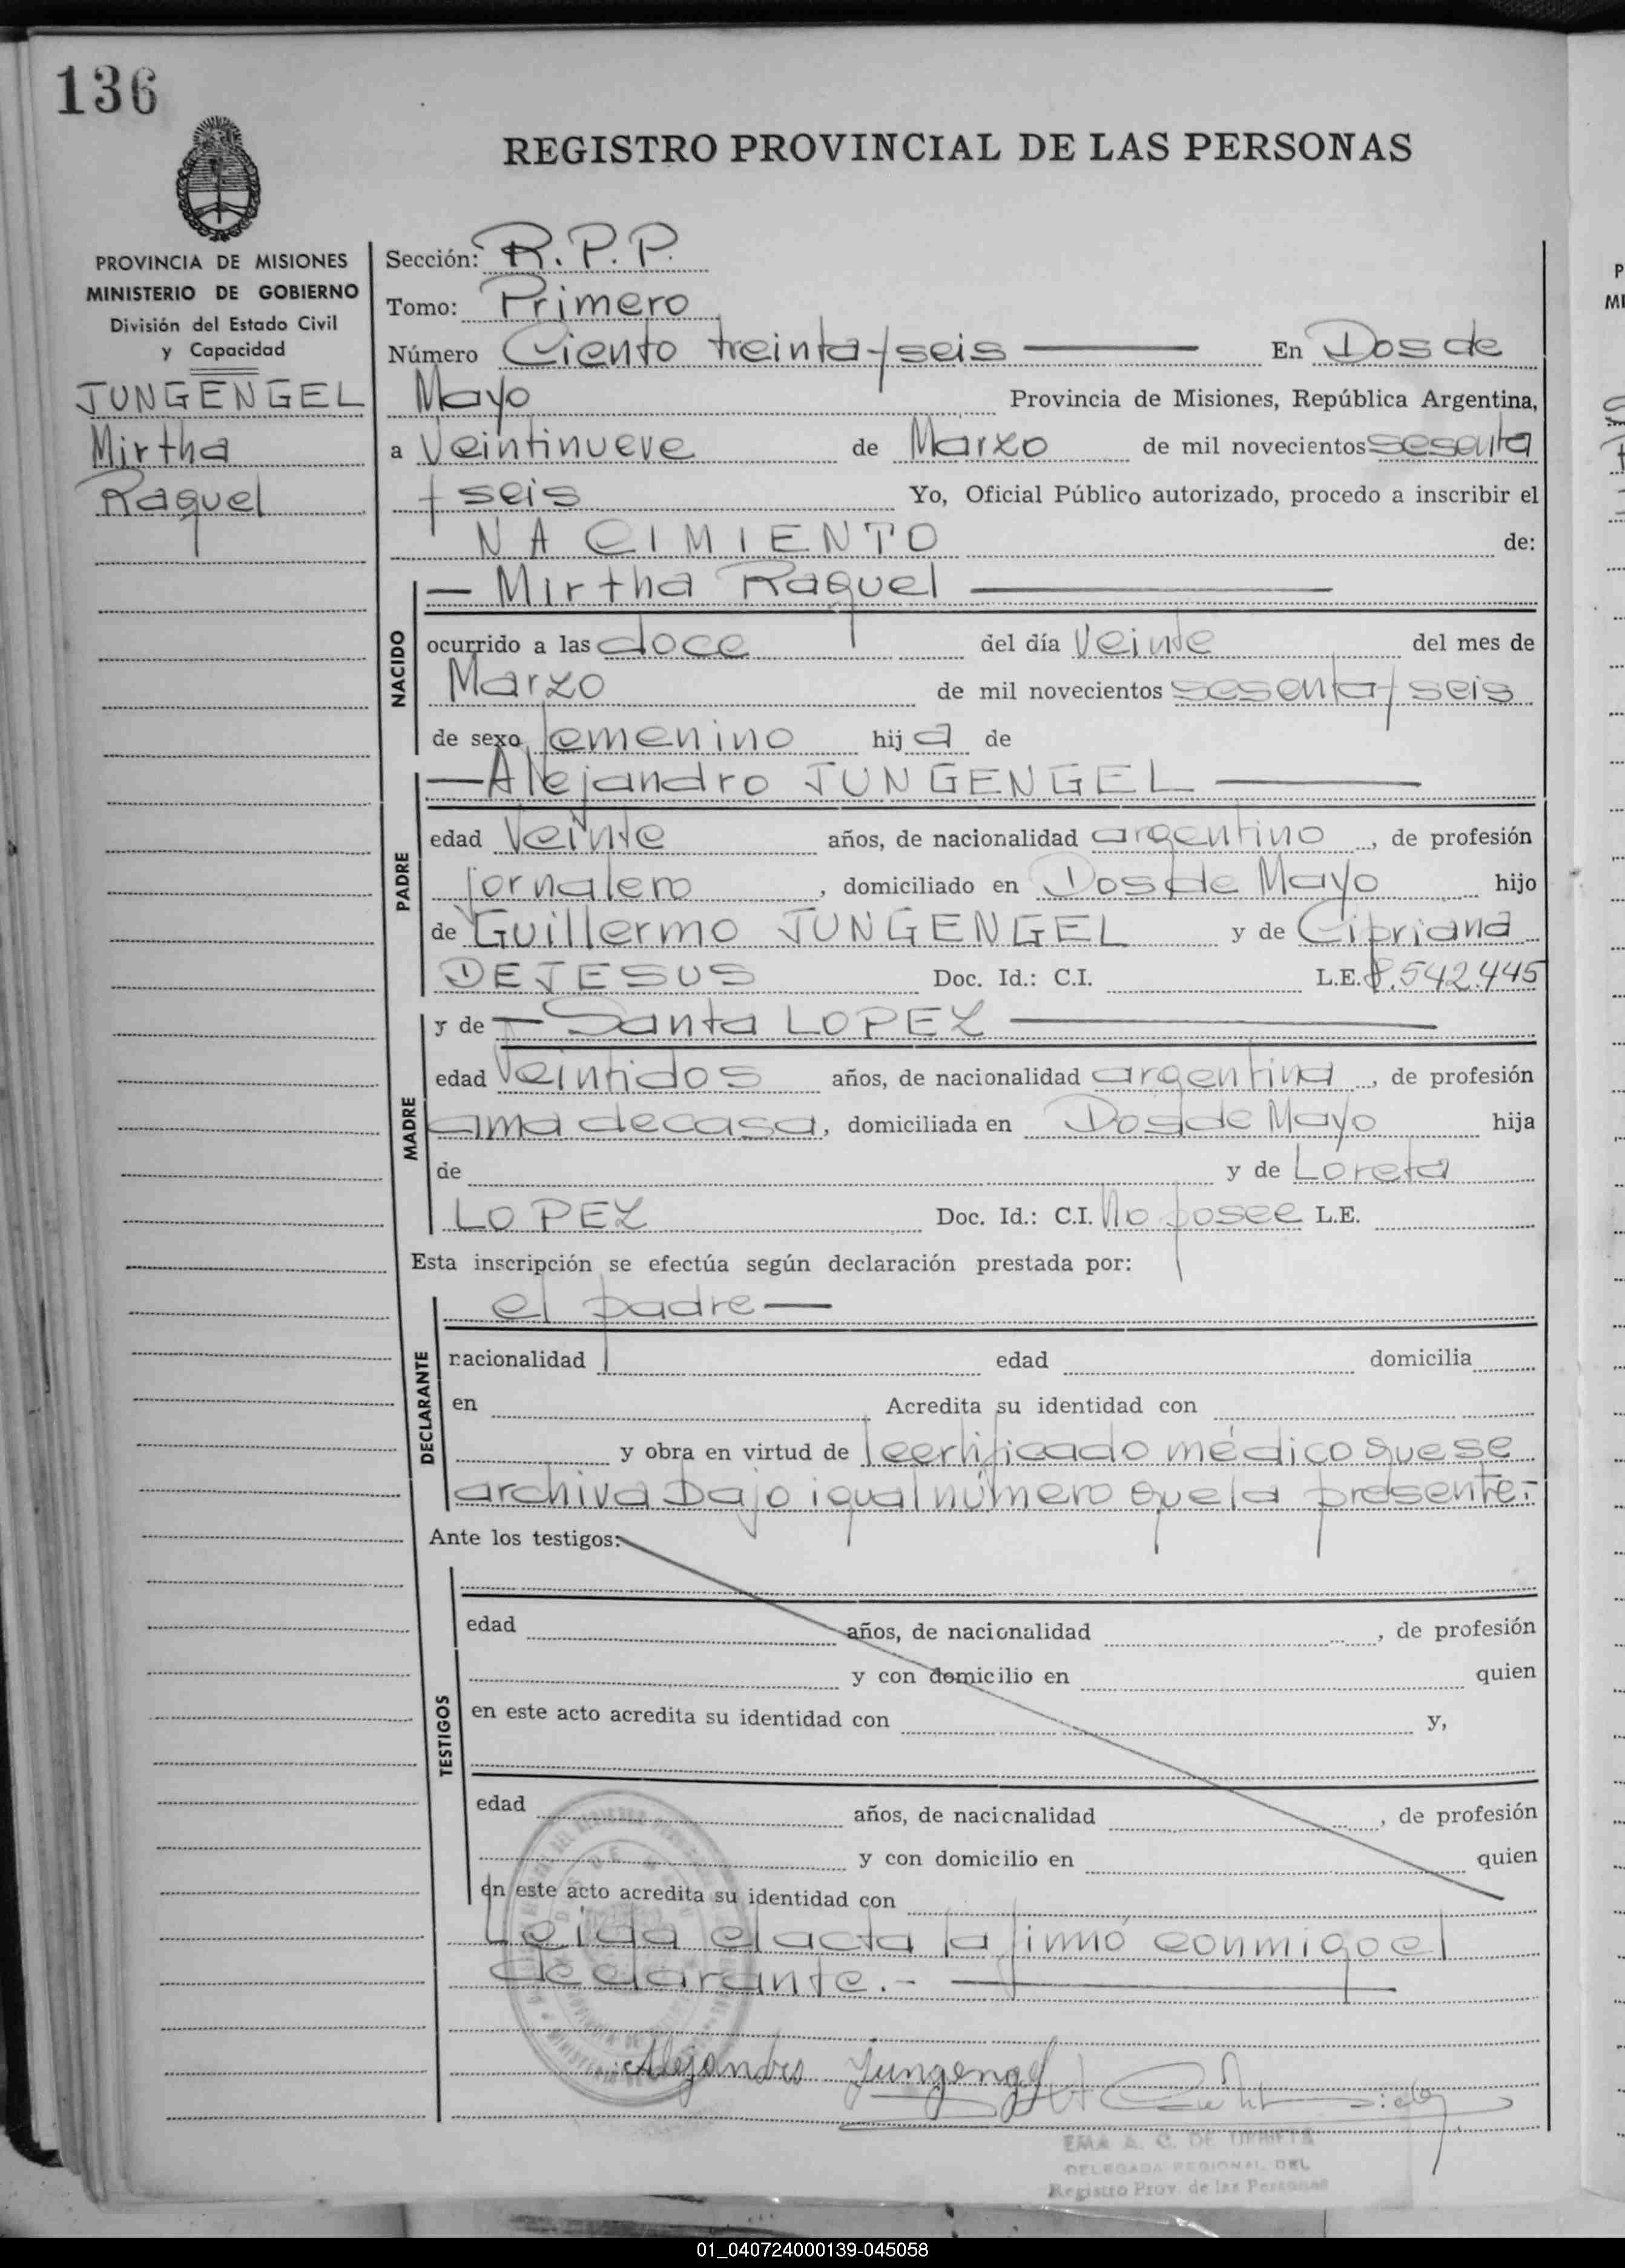 136
REGISTRO PROVINCIAL DE LAS PERSONAS
PROVINCIA DE MISIONES
MINISTERIO DE GOBIERNO
División del Estado Civil
y Capacidad
JUNGENGEL
Mirtha
Raquel
Sección: R.P.P.
Tomo: Primero
Número Ciento treinta y seis En Dos de
Mayo Provincia de Misiones, República Argentina,
a Veintinueve de Marzo de mil novecientos sesenta
y seis Yo, Oficial Público autorizado, procedo a inscribir el
NACIMIENTO de:
— Mirtha Raquel —
NACIDO
ocurrido a las doce del día Veinte del mes de
Marzo de mil novecientos sesenta y seis
de sexo femenino hij a de
— Alejandro JUNGENGEL —
PADRE
edad Veinte años, de nacionalidad argentino, de profesión
jornalero, domiciliado en Dos de Mayo hijo
de Guillermo JUNGENGEL y de Cipriana
DE JESUS Doc. Id.: C.I. L.E. 8.542.445
y de — Santa LOPEZ —
MADRE
edad Veintidos años, de nacionalidad argentina, de profesión
ama de casa, domiciliada en Dos de Mayo hija
de y de Loreta
LOPEZ Doc. Id.: C.I. No posee L.E.
Esta inscripción se efectúa según declaración prestada por:
el padre —
DECLARANTE
nacionalidad edad domicilia
en Acredita su identidad con
y obra en virtud de certificado médico que se
archiva bajo igual número que la presente.-
Ante los testigos:
TESTIGOS
edad años, de nacionalidad , de profesión
y con domicilio en quien
en este acto acredita su identidad con y,
edad años, de nacionalidad , de profesión
y con domicilio en quien
en este acto acredita su identidad con
Leída el acta la firmó conmigo el
declarante.- —
Alejandro Jungengel
EMA A. C. DE URRIETA
DELEGADA REGIONAL DEL
Registro Prov. de las Personas
01_040724000139-045058